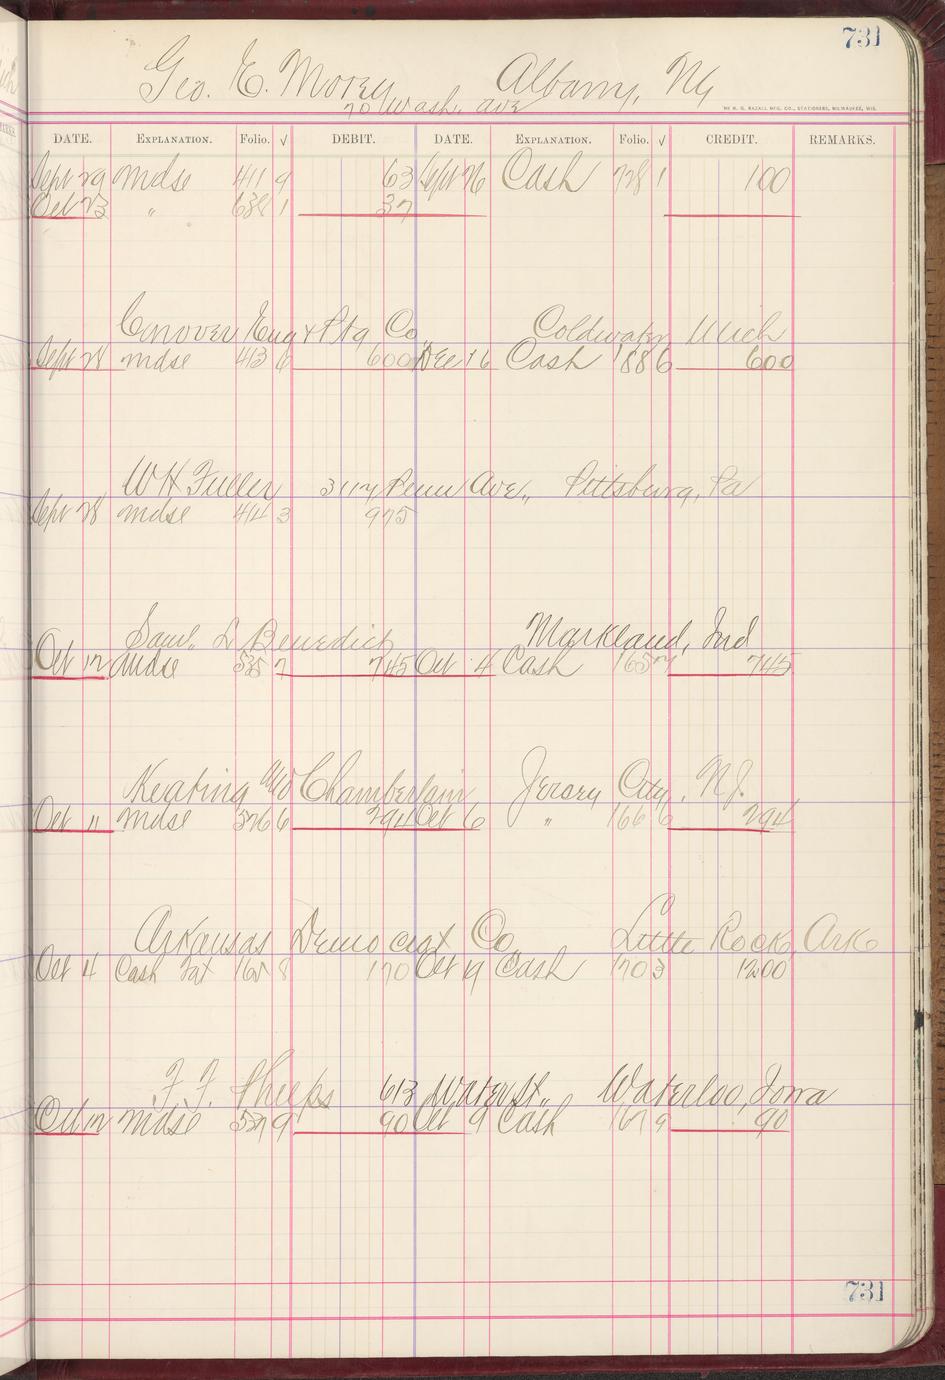 731
Geo. E. Morey Albany, Ny
70 Wash. ave
THE H. G. RAZALL MFG. CO., STATIONERS, MILWAUKEE, WIS.
DATE. EXPLANATION. Folio. √ DEBIT. DATE. EXPLANATION. Folio. √ CREDIT. REMARKS.
Sept 29 mdse 411 9 63 Sept 26 Cash 728 1 100
Oct 23 " 638 1 37
Conover Eng & Ptg Co. Coldwater Mich
Sept 28 mdse 413 6 600 Dec 16 Cash 188 6 600
W H Fuller 3117 Penn Ave., Pittsburg, Pa
Sept 28 mdse 414 3 975
Saml. L Benedict Markland, Ind
Oct 12 Mdse 535 7 745 Oct 4 Cash 165 7 745
Keating Chamberlain Jersey City, N.J.
Oct 11 mdse 526 6 294 Oct 6 " 166 6 294
Arkansas Democrat Co. Little Rock, Ark
Oct 4 Cash 8 170 Oct 19 Cash 170 3 1200
F. F. Phelps 613 Water St., Waterloo, Iowa
Oct 12 mdse 537 9 90 Oct 9 Cash 167 9 90
731